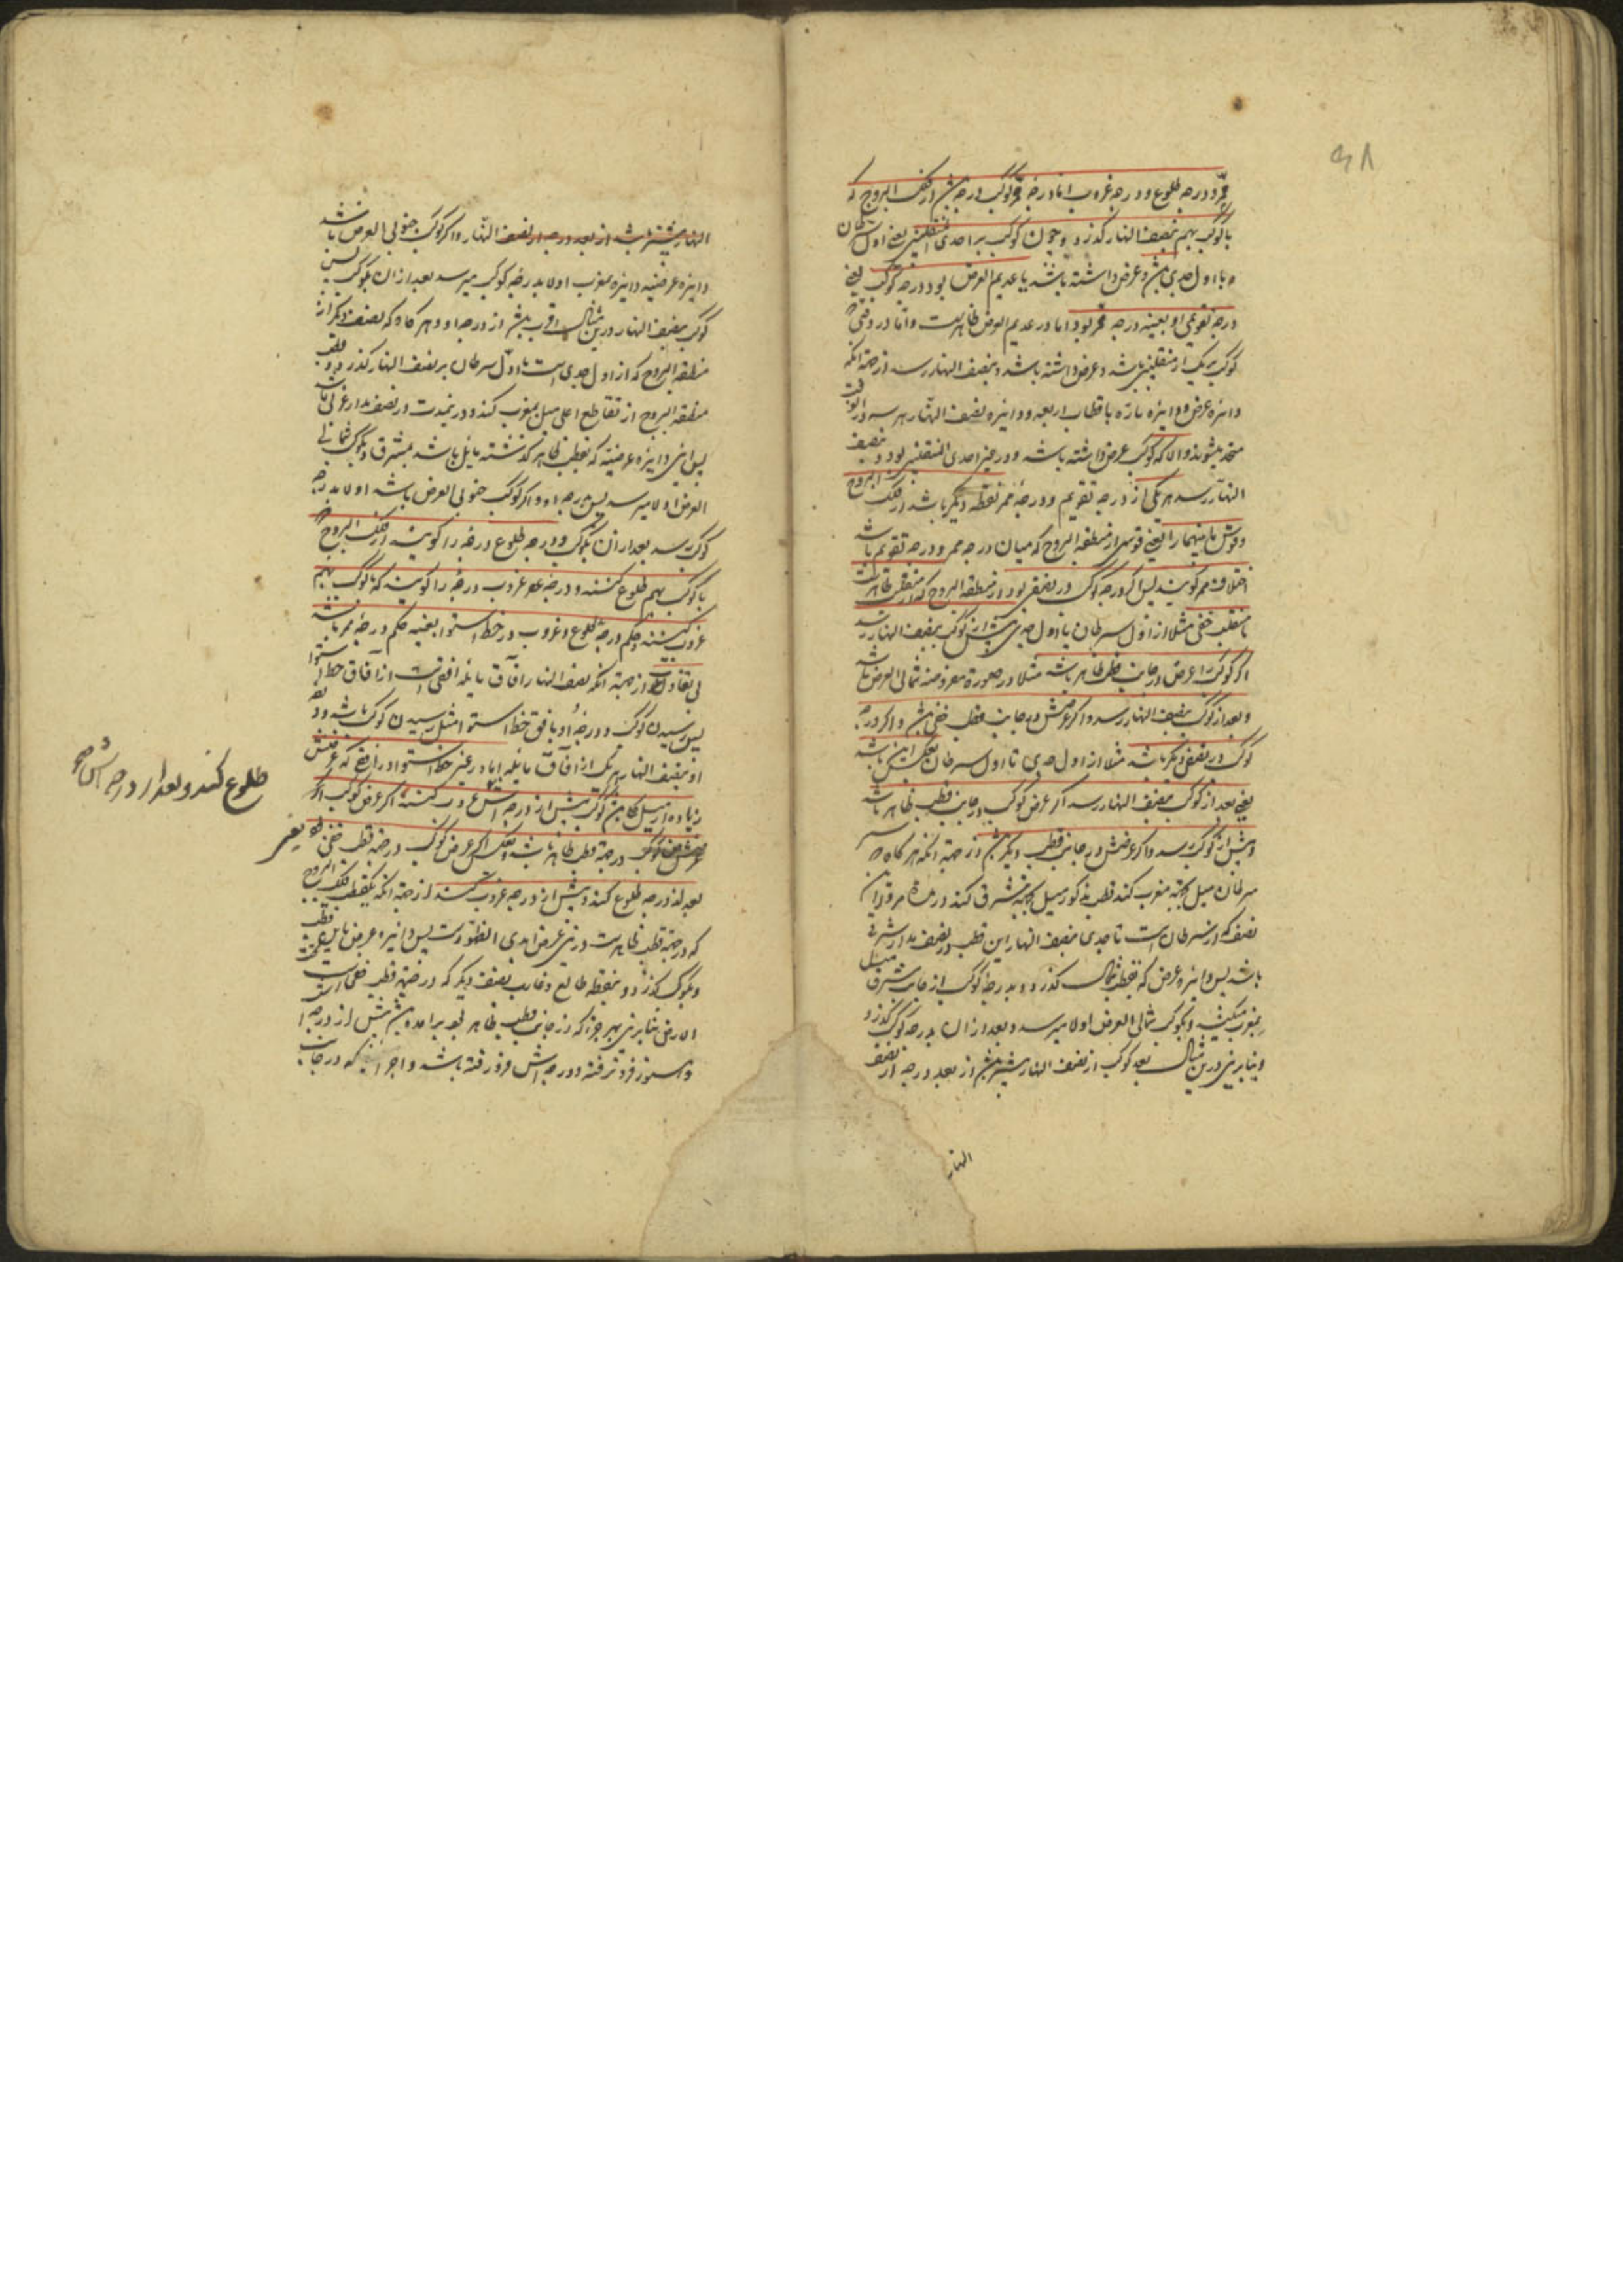 ممر و درجه طلوع و درجه غروب اما درجه ممر کوکب درجه باشد از فلک البروج که
با کوکب بهم بنصف النهار گذرد و چون کوکب بر احدی المنقلبین یعنی اول سرطان
و یا اول جدی باشد و عرض داشته باشد یا عدیم العرض بود درجه کوکب یعنی
درجه تقویمی او بعینه درجه ممر بود اما در عدیم العرض ظاهرست و اما در وقتی که
کوکب بر یک از منقلبین باشد و عرض داشته باشد و بنصف النهار رسد از جهة آنکه
دایره عرض و دایره ماره باقطاب اربعه و دایره نصف النهار هر سه در آنوقت
متحد میشوند و الا که کوکب عرض داشته باشد و در غیر احدی المنقلبین بود و بنصف
النهار رسد هر یکی از درجه تقویم و درجه ممر نقطه دیگر باشد از فلک البروج
و قوس ما بینهما را یعنی قوسی از منطقة البروج که میان درجه ممر و درجه تقویم باشد
اختلاف ممر گویند پس اگر درجه کوکب در نصفی بود از منطقة البروج که از منقلب ظاهرست
تا منقلب خفی مثلا از اول سرطان تا اول جدی پیش از کوکب بنصف النهار رسد
اگر کوکب را عرض در جانب قطب ظاهر باشد مثلا در صورة مفروضه شمالی العرض باشد
و بعد از کوکب بنصف النهار رسد و اگر عرضش در جانب قطب خفی باشد و اگر درجه
کوکب در نصفی دیگر باشد مثلا از اول جدی تا اول سرطان بعکس این باشد
یعنی بعد از کوکب بنصف النهار رسد اگر عرض کوکب در جانب قطب ظاهر باشد
و پیش از کوکب رسد و اگر عرضش در جانب قطب دیگر باشد از جهة آنکه هر گاه که
سرطان میل بجهة مغرب کند قطب مذکور میل بجهة مشرق کند در مدة مرور این
نصف که از سرطان است تا جدی بنصف النهار این قطب در نصف مدار شرقی
باشد پس دایره عرض که بقطب شمال گذرد و بدرجه کوکب از جانب شرق میل
بمغرب میکند و بکوکب شمالی العرض اولا میرسد و بعد از آن بدرجه کوکب گذرد
و بنابرین درین مثال بعد کوکب از نصف النهار بیشتر باشد از بعد درجه از نصف
النهار
النهار بیشتر باشد از بعد درجه از نصف النهار و اگر کوکب جنوبی العرض باشد
دایره عرضیه دایره مغرب اولا بدرجه کوکب میرسد بعد از آن بکوکب پس
کوکب بنصف النهار درین مثال اقرب باشد از درجه او و هر گاه که نصف دیگر از
منطقة البروج که از اول جدی است تا اول سرطان بر نصف النهار گذرد قطب
منطقة البروج از تقاطع اعلی میل بمغرب کند و درین مدت در نصف مدار غربی باشد
پس این دایره عرضیه که بقطب ظاهر گذشته مایل باشد بمشرق و بکوکب شمالی
العرض اولا میرسد پس بدرجه او و اگر کوکب جنوبی العرض باشد اولا بدرجه
کوکب رسد بعد از آن بکوکب و درجه طلوع درجه را گویند از فلک البروج که
با کوکب بهم طلوع کند و درجه غروب درجه را گویند که با کوکب بهم
غروب کند و حکم درجه طلوع و غروب در خط استوا بعینه حکم درجه ممر باشد
بی تفاوت از جهة آنکه نصف النهار آفاق مایله افقی است از آفاق خط استوا
پس رسیدن کوکب و درجه او بافق خط استوا مثل رسیدن کوکب باشد و درجه
او بنصف النهار هر یک از آفاق مایله اما در غیر خط استوا در ارضی که عرضش
زیاده از میل کلی باشد کوکب پیش از درجه اش طلوع کند اگر عرض کوکب
درجهة قطب ظاهر باشد و بعکس اگر عرض کوکب در جهة قطب خفی بود یعنی
بعد از درجه طلوع کند و پیش از درجه غروب کند از جهة آنکه یک قطب فلک البروج
که در جهة قطب ظاهرست درین عرض ابدی الظهورست پس دایره عرض باین قطب
و بکوکب گذرد و بنقطه طالع و غارب بنصف دیگر که در جهة قطب خفی است
الارض بنابرین هر جزء که از جانب قطب ظاهر بود برآمده باشد پیش از درجه
و هنوز فرو نرفته و درجه اش فرو رفته باشد و اجزائی که در جانب
طلوع کند و بعد از درجه اش